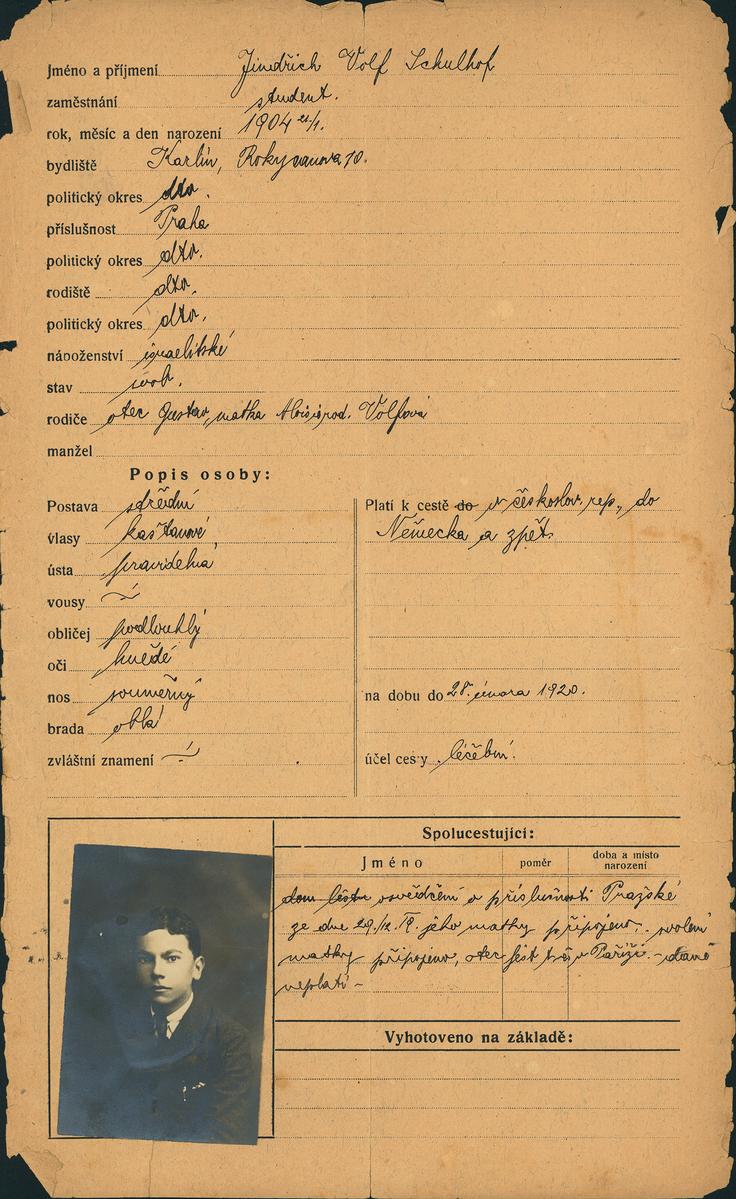 Jméno a příjmení Jindřich Volf Schulhof
zaměstnání student.
rok, měsíc a den narození 1904 21/1.
bydliště Karlín, Rokycanova 10.
politický okres dto.
příslušnost Praha
politický okres dto.
rodiště dto.
politický okres dto.
náboženství israelitské
stav svob.
rodiče otec Gustav, matka Aloisie rod. Volfová
manžel
Popis osoby:
Postava střední
vlasy kaštanové
ústa pravidelná
vousy
obličej podlouhlý
oči hnědé
nos souměrný
brada oblá
zvláštní znamení
Platí k cestě do v českoslov. rep., do
Německa a zpět.
na dobu do 28. února 1920.
účel cesty léčební.
Spolucestující:
Jméno poměr doba a místo narození
dom. listu osvědčení o příslušnosti Pražské
ze dne 29./12. 19. jeho matky připojeno, svolení
matky připojeno, otec v Paříži. - daně
neplatí -
Vyhotoveno na základě: